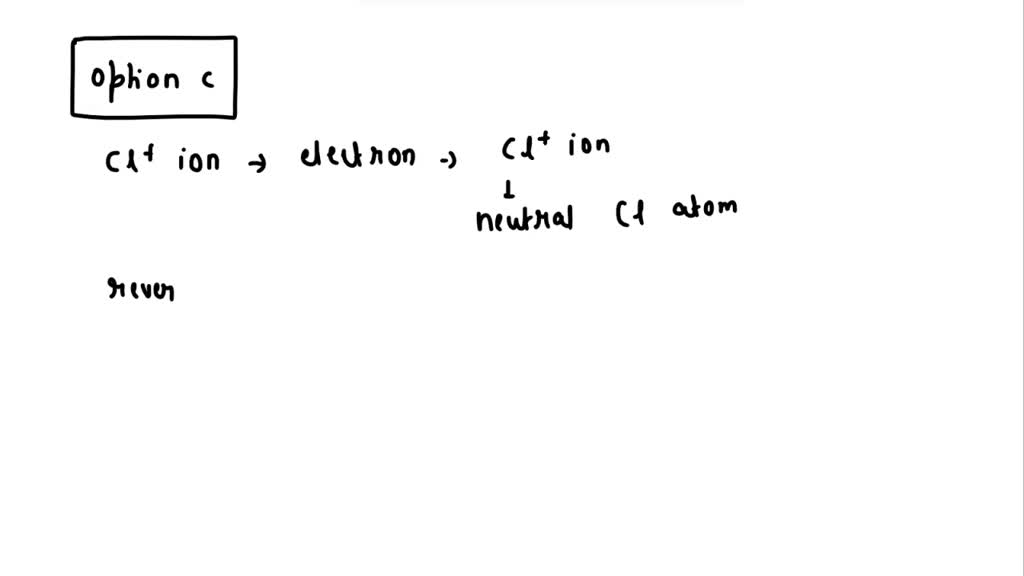 option c
Cl⁺ ion → electron → Cl⁺ ion
↓
neutral Cl atom
rever